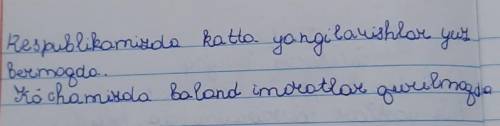 Respublikamizda katta yangilanishlar yuz
bermoqda.
Ko'chamizda baland imoratlar qurilmoqda